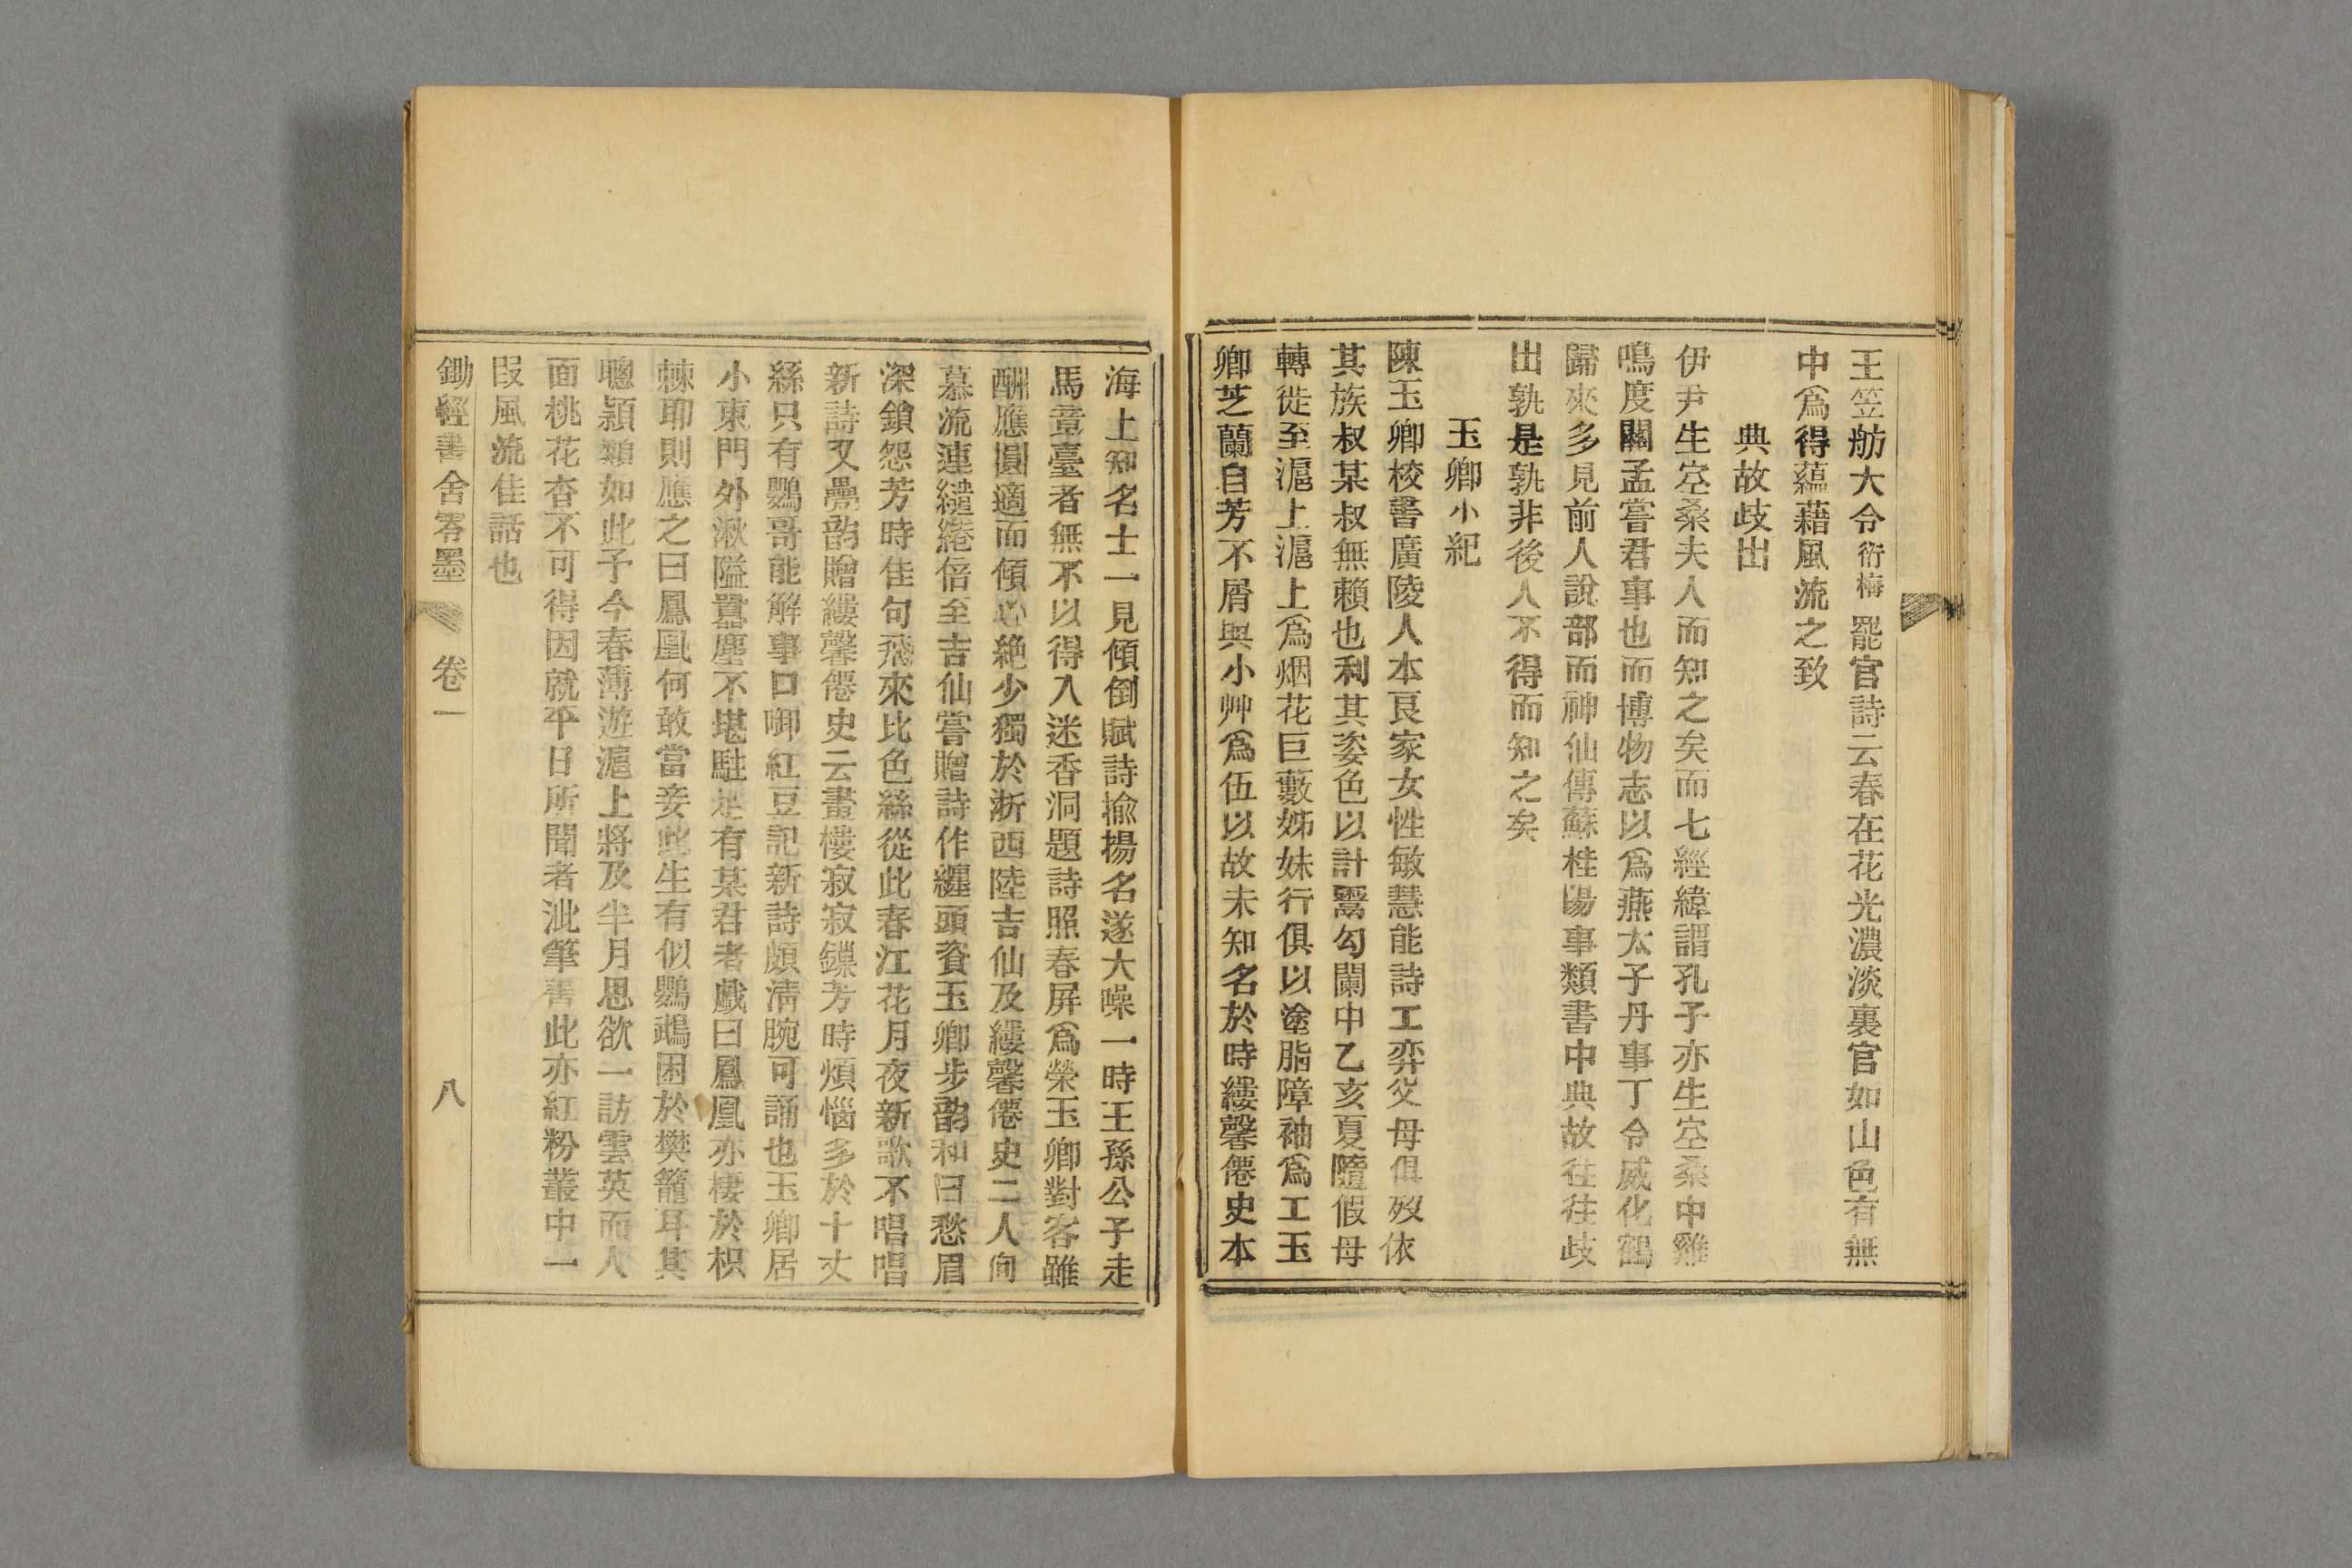 王笠舫大令衍梅罷官詩云春在花光濃淡裏官如山色有無
中爲得蘊藉風流之致
典故歧出
伊尹生空桑夫人而知之矣而七經緯謂孔子亦生空桑中雞
鳴度關孟嘗君事也而博物志以爲燕太子丹事丁令威化鶴
歸來多見前人說部而神仙傳蘇桂陽事類書中典故往往歧
出孰是孰非後人不得而知之矣
玉卿小紀
陳玉卿校書廣陵人本良家女性敏慧能詩工弈父母俱歿依
其族叔某叔無賴也利其姿色以計鬻勾闌中乙亥夏隨假母
轉徙至滬上滬上爲烟花巨藪姊妹行俱以塗脂障袖爲工玉
卿芝蘭自芳不屑與小艸爲伍以故未知名於時縷馨僊史本
海上知名士一見傾倒賦詩揄揚名遂大噪一時王孫公子走
馬章臺者無不以得入迷香洞題詩照春屏爲榮玉卿對客雖
酬應圓適而傾心絶少獨於浙西陸吉仙及縷馨僊史二人向
慕流連繾綣倍至吉仙嘗贈詩作纏頭資玉卿步韵和曰愁眉
深鎖怨芳時佳句飛來比色絲從此春江花月夜新歌不唱唱
新詩又疊韵贈縷馨僊史云畫樓寂寂鏁芳時煩惱多於十丈
絲只有鸚哥能解事口啣紅豆記新詩頗淸腕可誦也玉卿居
小東門外湫隘囂塵不堪駐足有某君者戲曰鳳凰亦棲於枳
棘耶則應之曰鳳凰何敢當妾此生有似鸚鵡困於樊籠耳其
聰穎類如此予今春薄遊滬上將及半月思欲一訪雲英而人
面桃花杳不可得因就平日所聞者泚筆書此亦紅粉叢中一
叚風流佳話也
鋤經書舍零墨 卷一 八